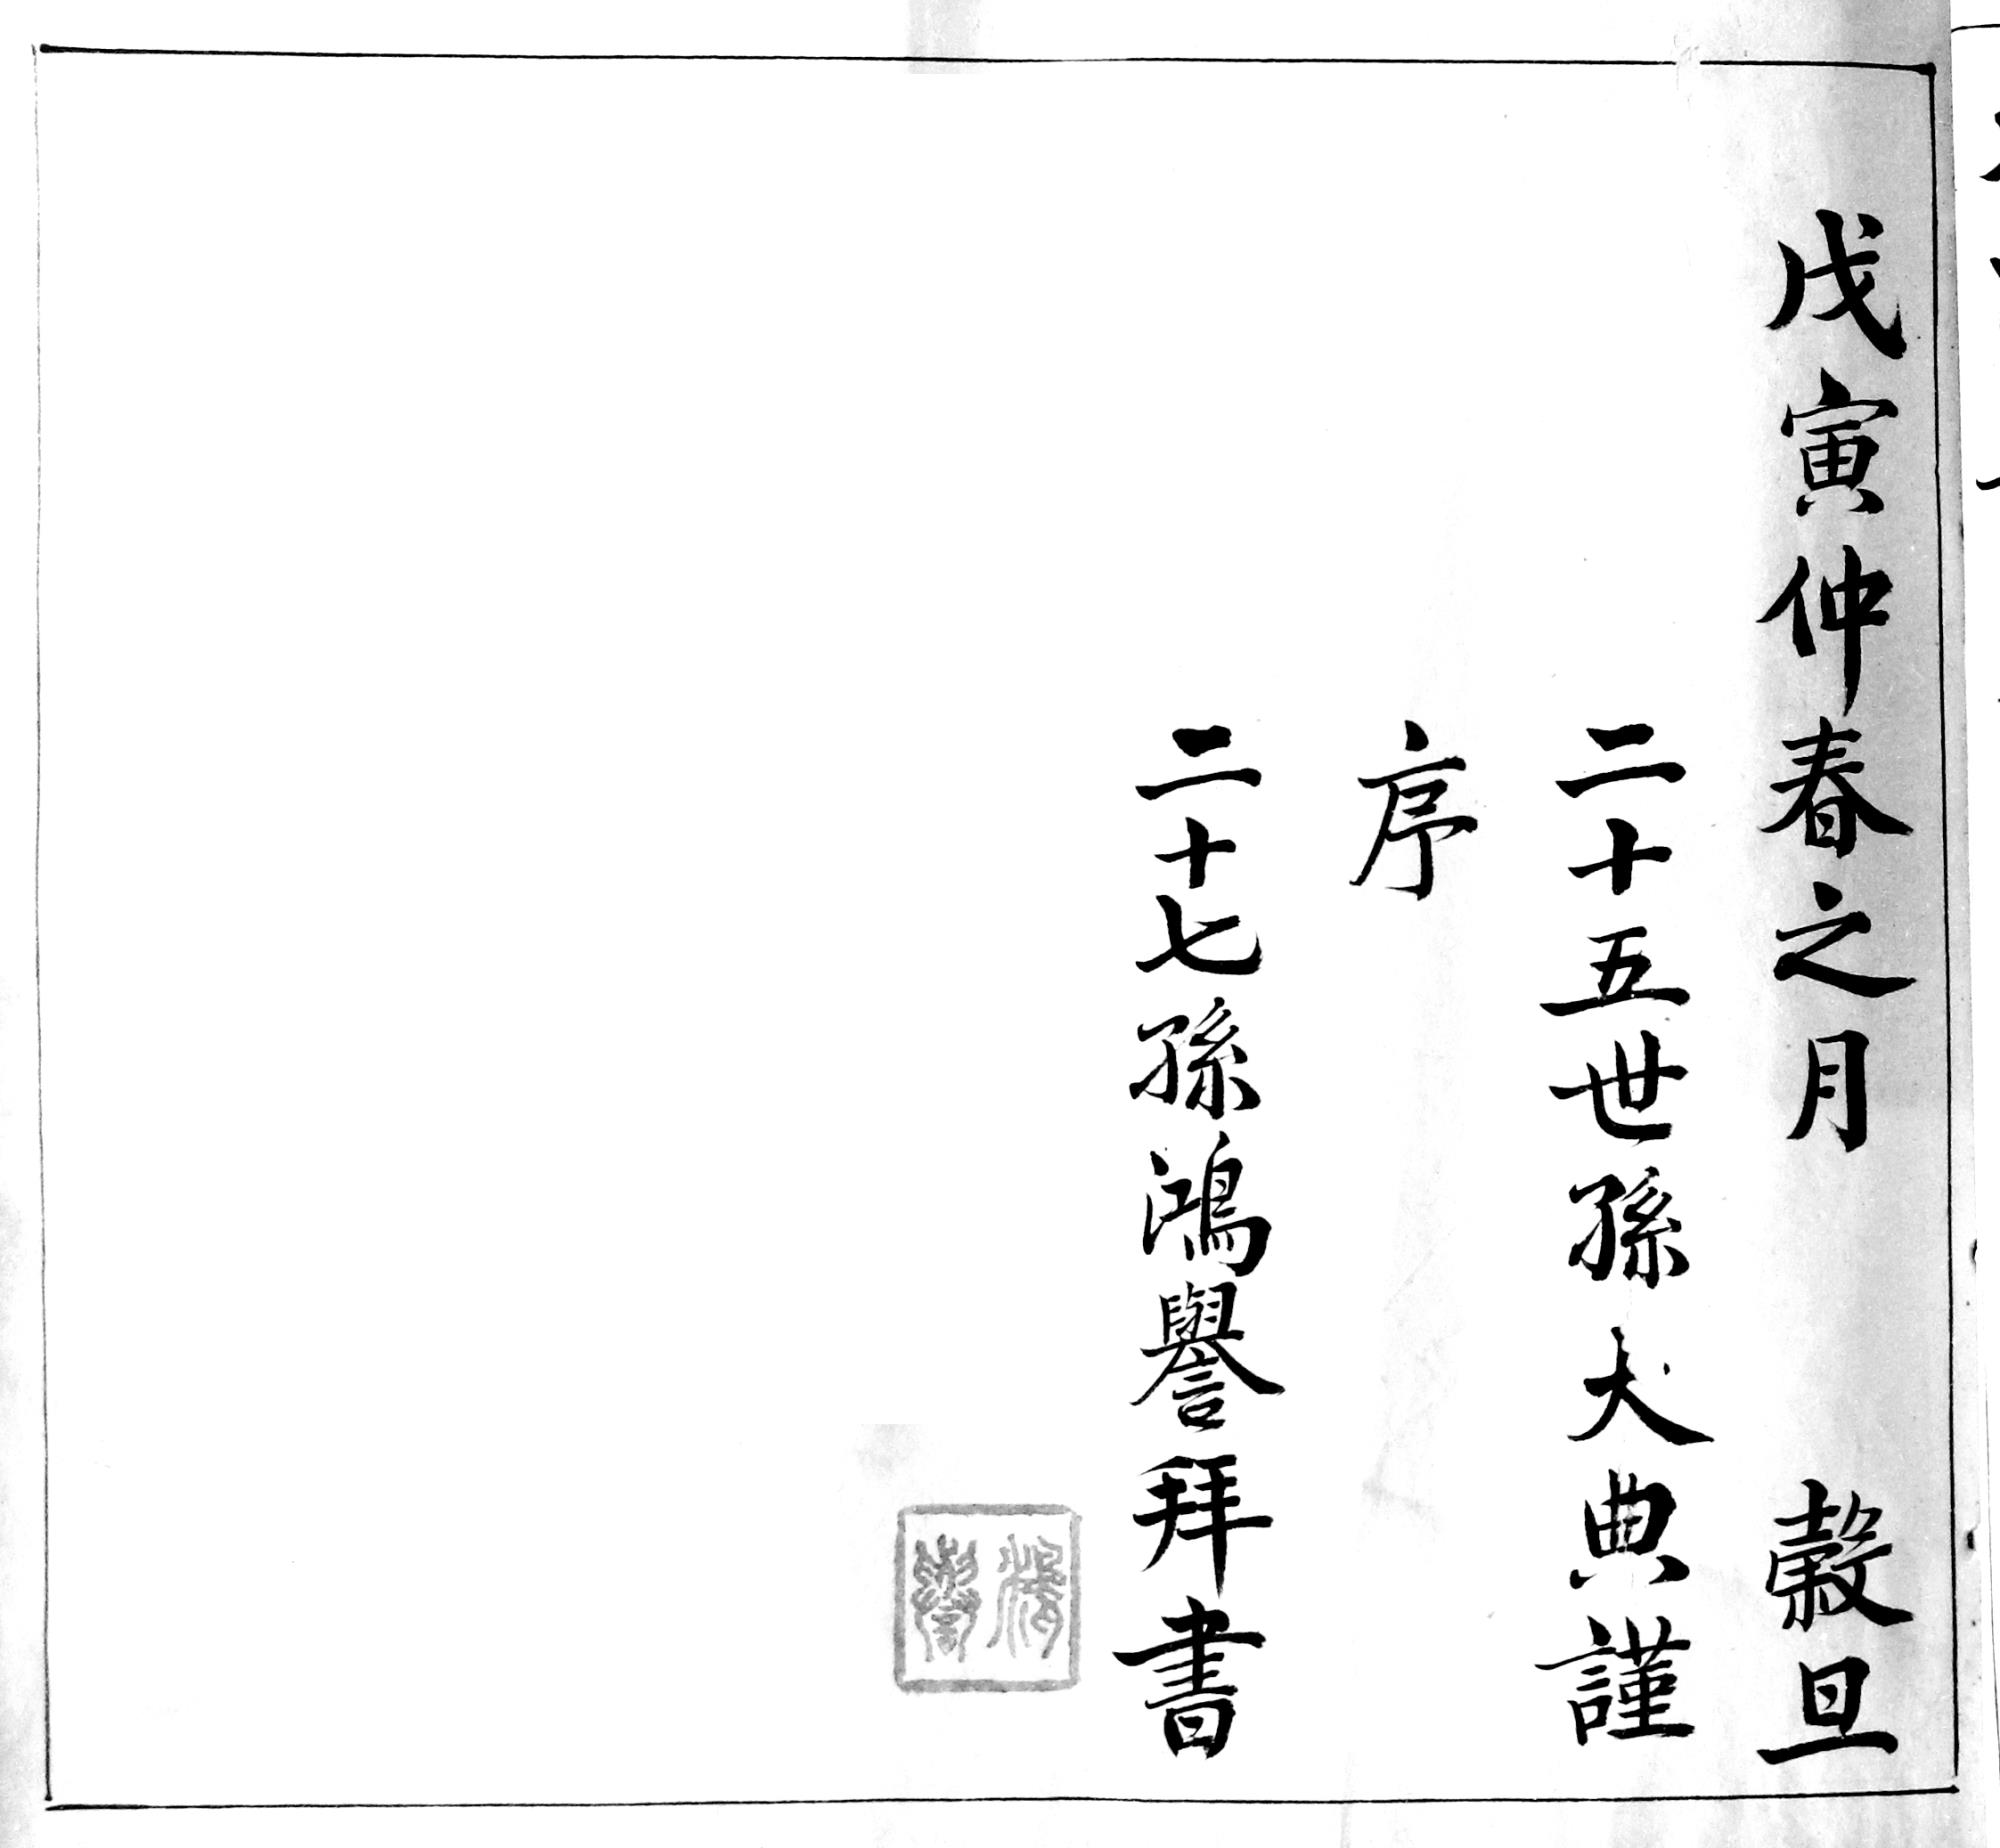 戊寅仲春之月 穀旦
二十五世孫大典謹
序
二十七孫鴻譽拜書
鴻譽